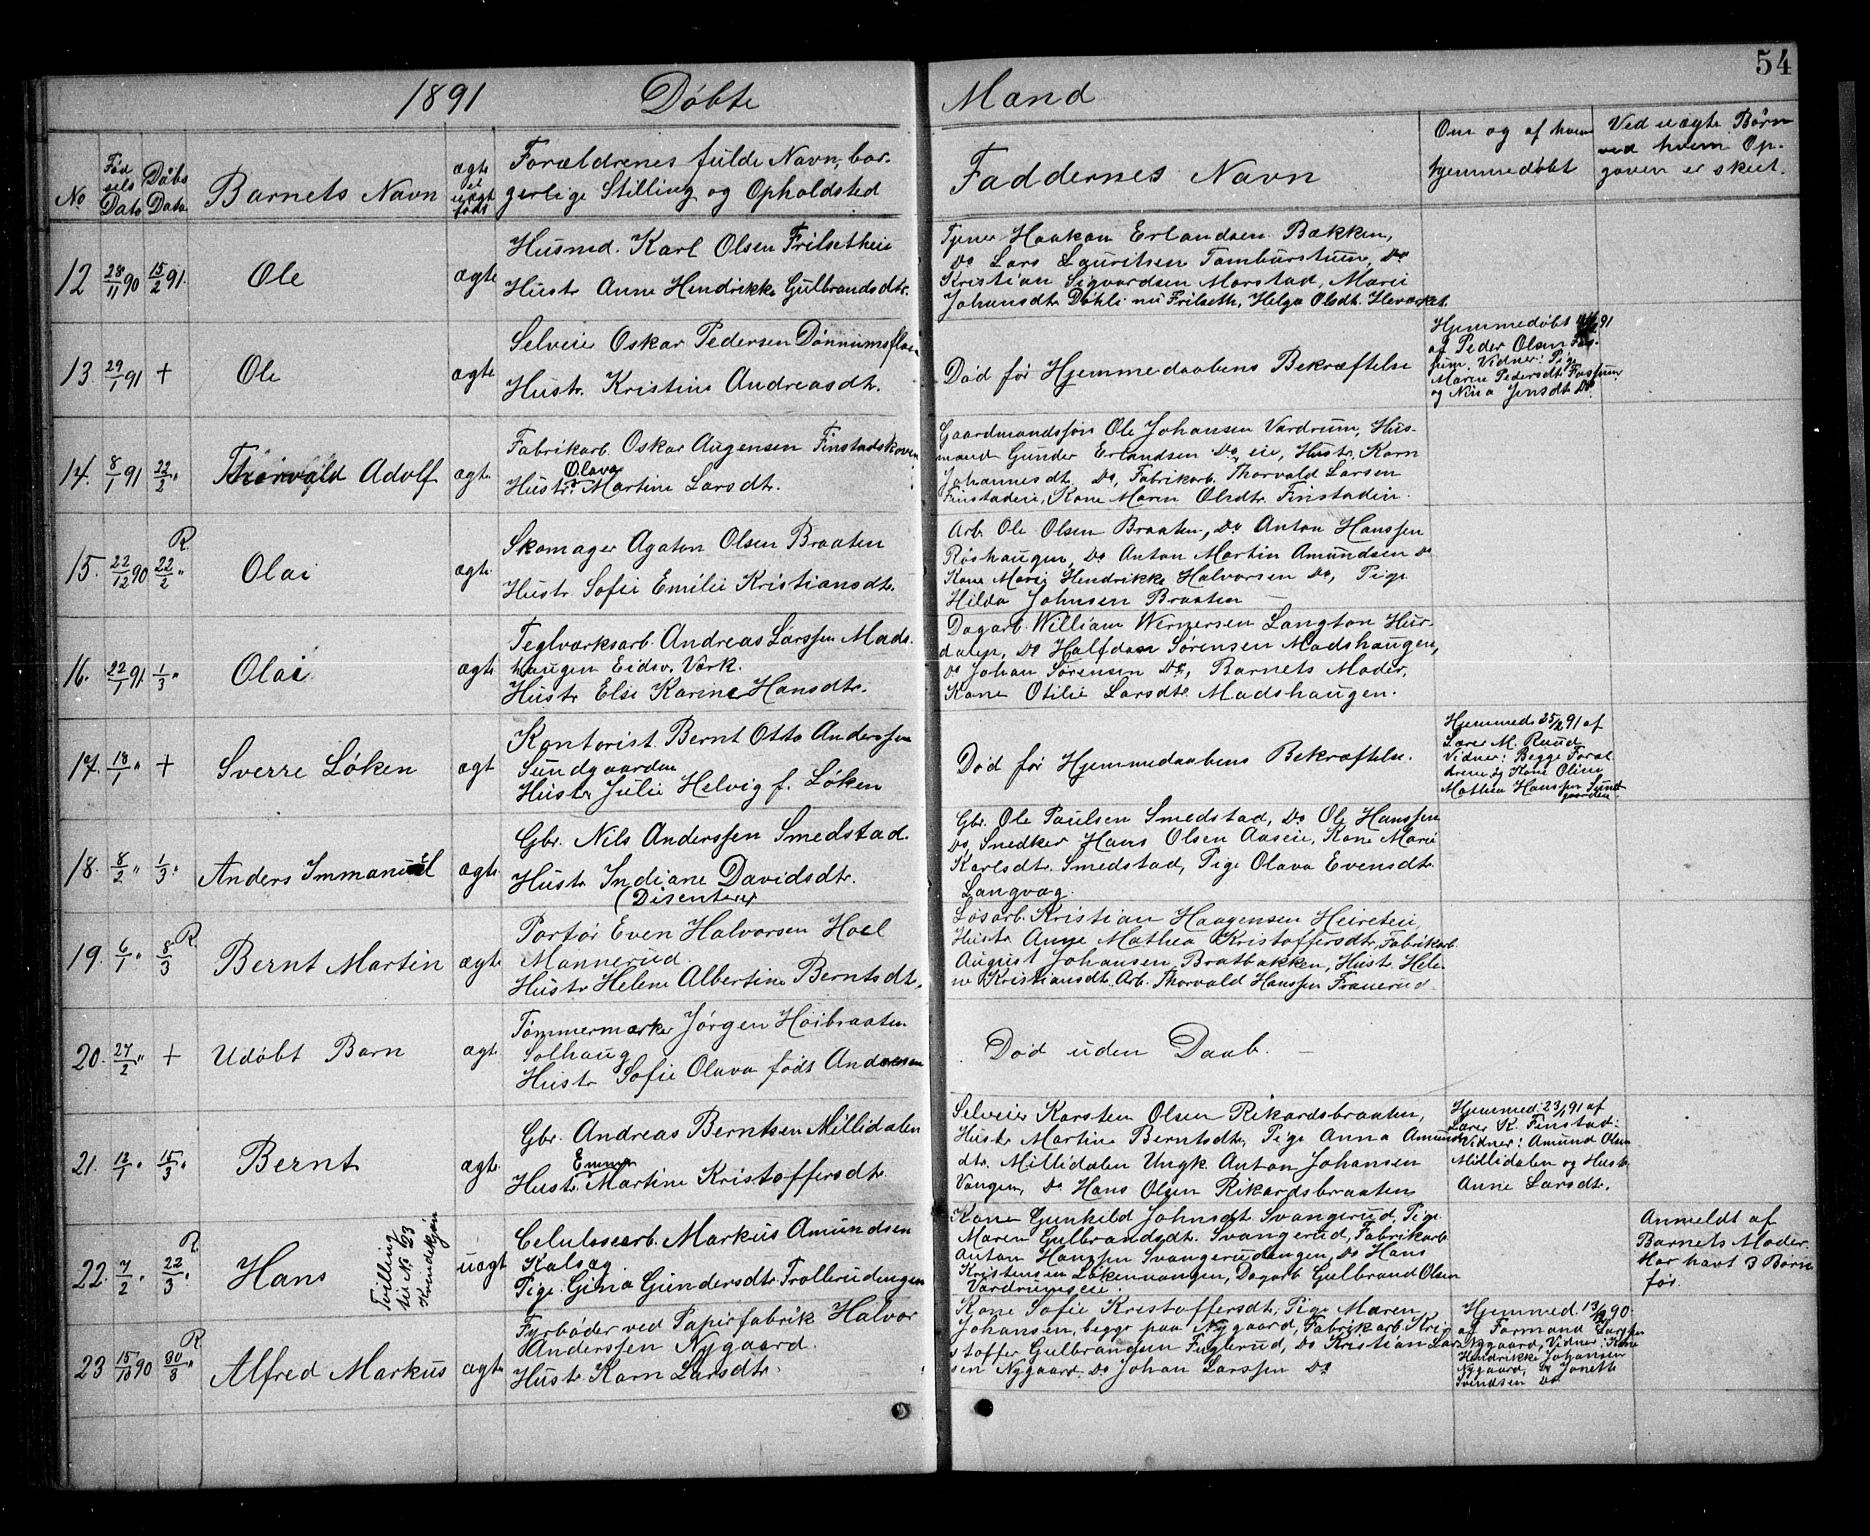 54
1891 Döbte Mænd
No
Fødsels Dato
Daabs Dato
Barnets Navn
ægte el uægt født
Forældrenes fulde Navn, borgerlige Stilling og Opholdsted
Faddernes Navn
Om og af hvem hjemmedöbt
Ved uægte Børn ved hvem Opgaven er skeet.
12 28/11 90 15/2 91. Ole ægte
Husmd. Karl Olsen Frilsetheie
Hustr Anne Hendrikke Gulbrandsdtr.
Tjener Haakon Erlandsen Bækken,
Do Lars Lauritsen Tamburstuen, Do
Kristian Sigvardsen Morstad, Marie
Johansdtr Døhli nu Frilseth, Helga Olsdt.
13 29/1 91 + Ole ægte
Selveier Oskar Pedersen Dönnumsflaen
Hustr. Kristine Andreasdtr.
Död før Hjemmedaabens Bekræftelse
Hjemmedøbt 91
af Peder Olsen Fos-
sum. Vidner: Pige
Marie Pedersdt. Fossum
og Nina Jensdt Do
14. 8/1 91 22/2 " Thorvald Adolf ægt.
Fabrikarb. Oskar Augensen Finstadskoven
Olava
Hustr. Martine Larsdtr.
Gaardmandssøn Ole Johansen Vardrum, Hus-
mand Gunder Erlandsen Do eie, Hustr. Karn
Johannesdt, Do, Fabrikarb. Thorvald Larsen
Finstadeie, Kone Maren Olsdtr Finstadeie.
R
15. 22/12 90 22/2 " Olai ægte.
Skomager Agaton Olsen Braaten
Hustr Sofie Emilie Kristiansdtr.
Arb. Ole Olsen Braaten, Do Anton Hanssen
Röshaugen, Do Anton Martin Amundsen Do
Kone Marie Hendrikke Halvorsen Do, Pige
Hilda Johnsen Braaten
16. 22/1 91 1/3 " Olai ægte
Teglværksarb. Andreas Larssen Mads-
haugen Eidsv. Værk.
Hustr Else Karine Hansdtr.
Dagarb. William Wernersen Langton Hur-
dalen, Do Halfdan Sørensen Madshaugen,
Do Johan Sørensen Do, Barnets Moder,
Kone Otilie Larsdtr Madshaugen.
17. 18/1 " + Sverre Löken ægt
Kontorist Bernt Otto Anderssen
Sundgaarden
Hustr Julie Helvig f. Löken
Död før Hjemmedaabens Bekræftelse.
Hjemmed. 25/2 91 af
Lærer M. Ruud
Vidner: Begge Foræl
drene og Kone Oline
Mathea Hanssen Sund
gaarden.
18. 8/2 " 1/3 " Anders Immanuel ægt.
Gbr. Nils Anderssen Smedstad.
Hustr Indiane Davidsdtr.
(Disentere)
Gbr. Ole Paulsen Smedstad, Do Ole Hanssen
Do, Snedker Hans Olsen Aaseie, Kone Marie
Karlsdtr. Smedstad, Pige Olava Evensdtr.
Langvæg.
19. 6/1 " 8/3 R. Bernt Martin ægte
Portör Even Halvorsen Hoel
Mannerud.
Hustr Helene Albertine Berntsdtr.
Løsarb. Kristian Haagensen Heireteie
Hustr Anne Mathea Kristoffersdtr, Fabrikarb
August Johansen Bratbakken, Hustr. Hele-
ne Kristiansdt. Arb. Thorvald Hanssen Frauerud
20. 27/2 " + Udöbt Barn ægt.
Tömmermærker Jörgen Höibraaten
Solhaug
Hustr Sofie Olava födt Andersen
Död uden Daab.
21. 12/1 " 15/3 " Bernt ægte.
Gbr. Andreas Berntsen Millidalen
Emma
Hustr. Martine Kristoffersdtr.
Selveier Karsten Olsen Rikardsbraaten,
Hustr Martine Berntsdtr, Pige Anna Amunds
dtr. Millidalen Ungk. Anton Johansen
Vangen, Do Hans Olsen Rikardsbraaten
Hjemmed: 23/1 91 af
Lærer K. Finstad:
Vidner: Amund Olsen
Millidalen og Hustr
Anne Larsdtr.
22. 7/2 " 22/3 " R. Hans uægt
Tvilling
til No 23
Kvindekjön
Celulosearb. Markus Amundsen
Kalsæg.
Pige. Gina Gundersdtr Trollerudengen
Kone Gunhild Johnsdt. Svangerud, Pige
Maren Gulbrandsdt. Svangerud, Fabrikarb.
Anton Hanssen Svangerudengen, Do Hans
Kristensen Lökenvangen, Dagarb Gulbrand Olsen
Vardrumseie.
Anmeldt af
Barnets Moder.
Har havt 3 Børn
før.
23 15/10 90 30/3 " R Alfred Markus ægte
Fyrböder ved Papirfabrik Halvor
Anderssen Nygaard.
Hustr. Karn Larsdtr.
Kone Sofie Kristoffersdt, Pige Maren
Johansen, begge paa Nygaard, Fabrikarb. Kri-
stoffer Gulbrandsen Fuglerud, Do Kristian Lar
sen Nygaard. Do Johan Larssen Do
Hjemmed. 90.
af Formand Larssen
Nygaard, Vidner: Kone
Hendrikke Johansen
Nygaard, Do Jonette
Svendsen Do